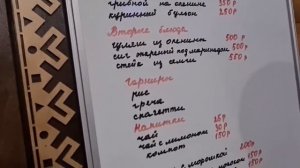 грибной на оленине 350 р
куринный бульон 250 р
Вторые блюда
гуляш из оленины 500 р
сиг жаренный под маринадом 500 р
стейк из семги 550 р
Гарниры
рис
греча
спагетти
Напитки
чай 25 р
чай с лимоном 30 р
компот 150 р
с морошкой 200 р
150 р